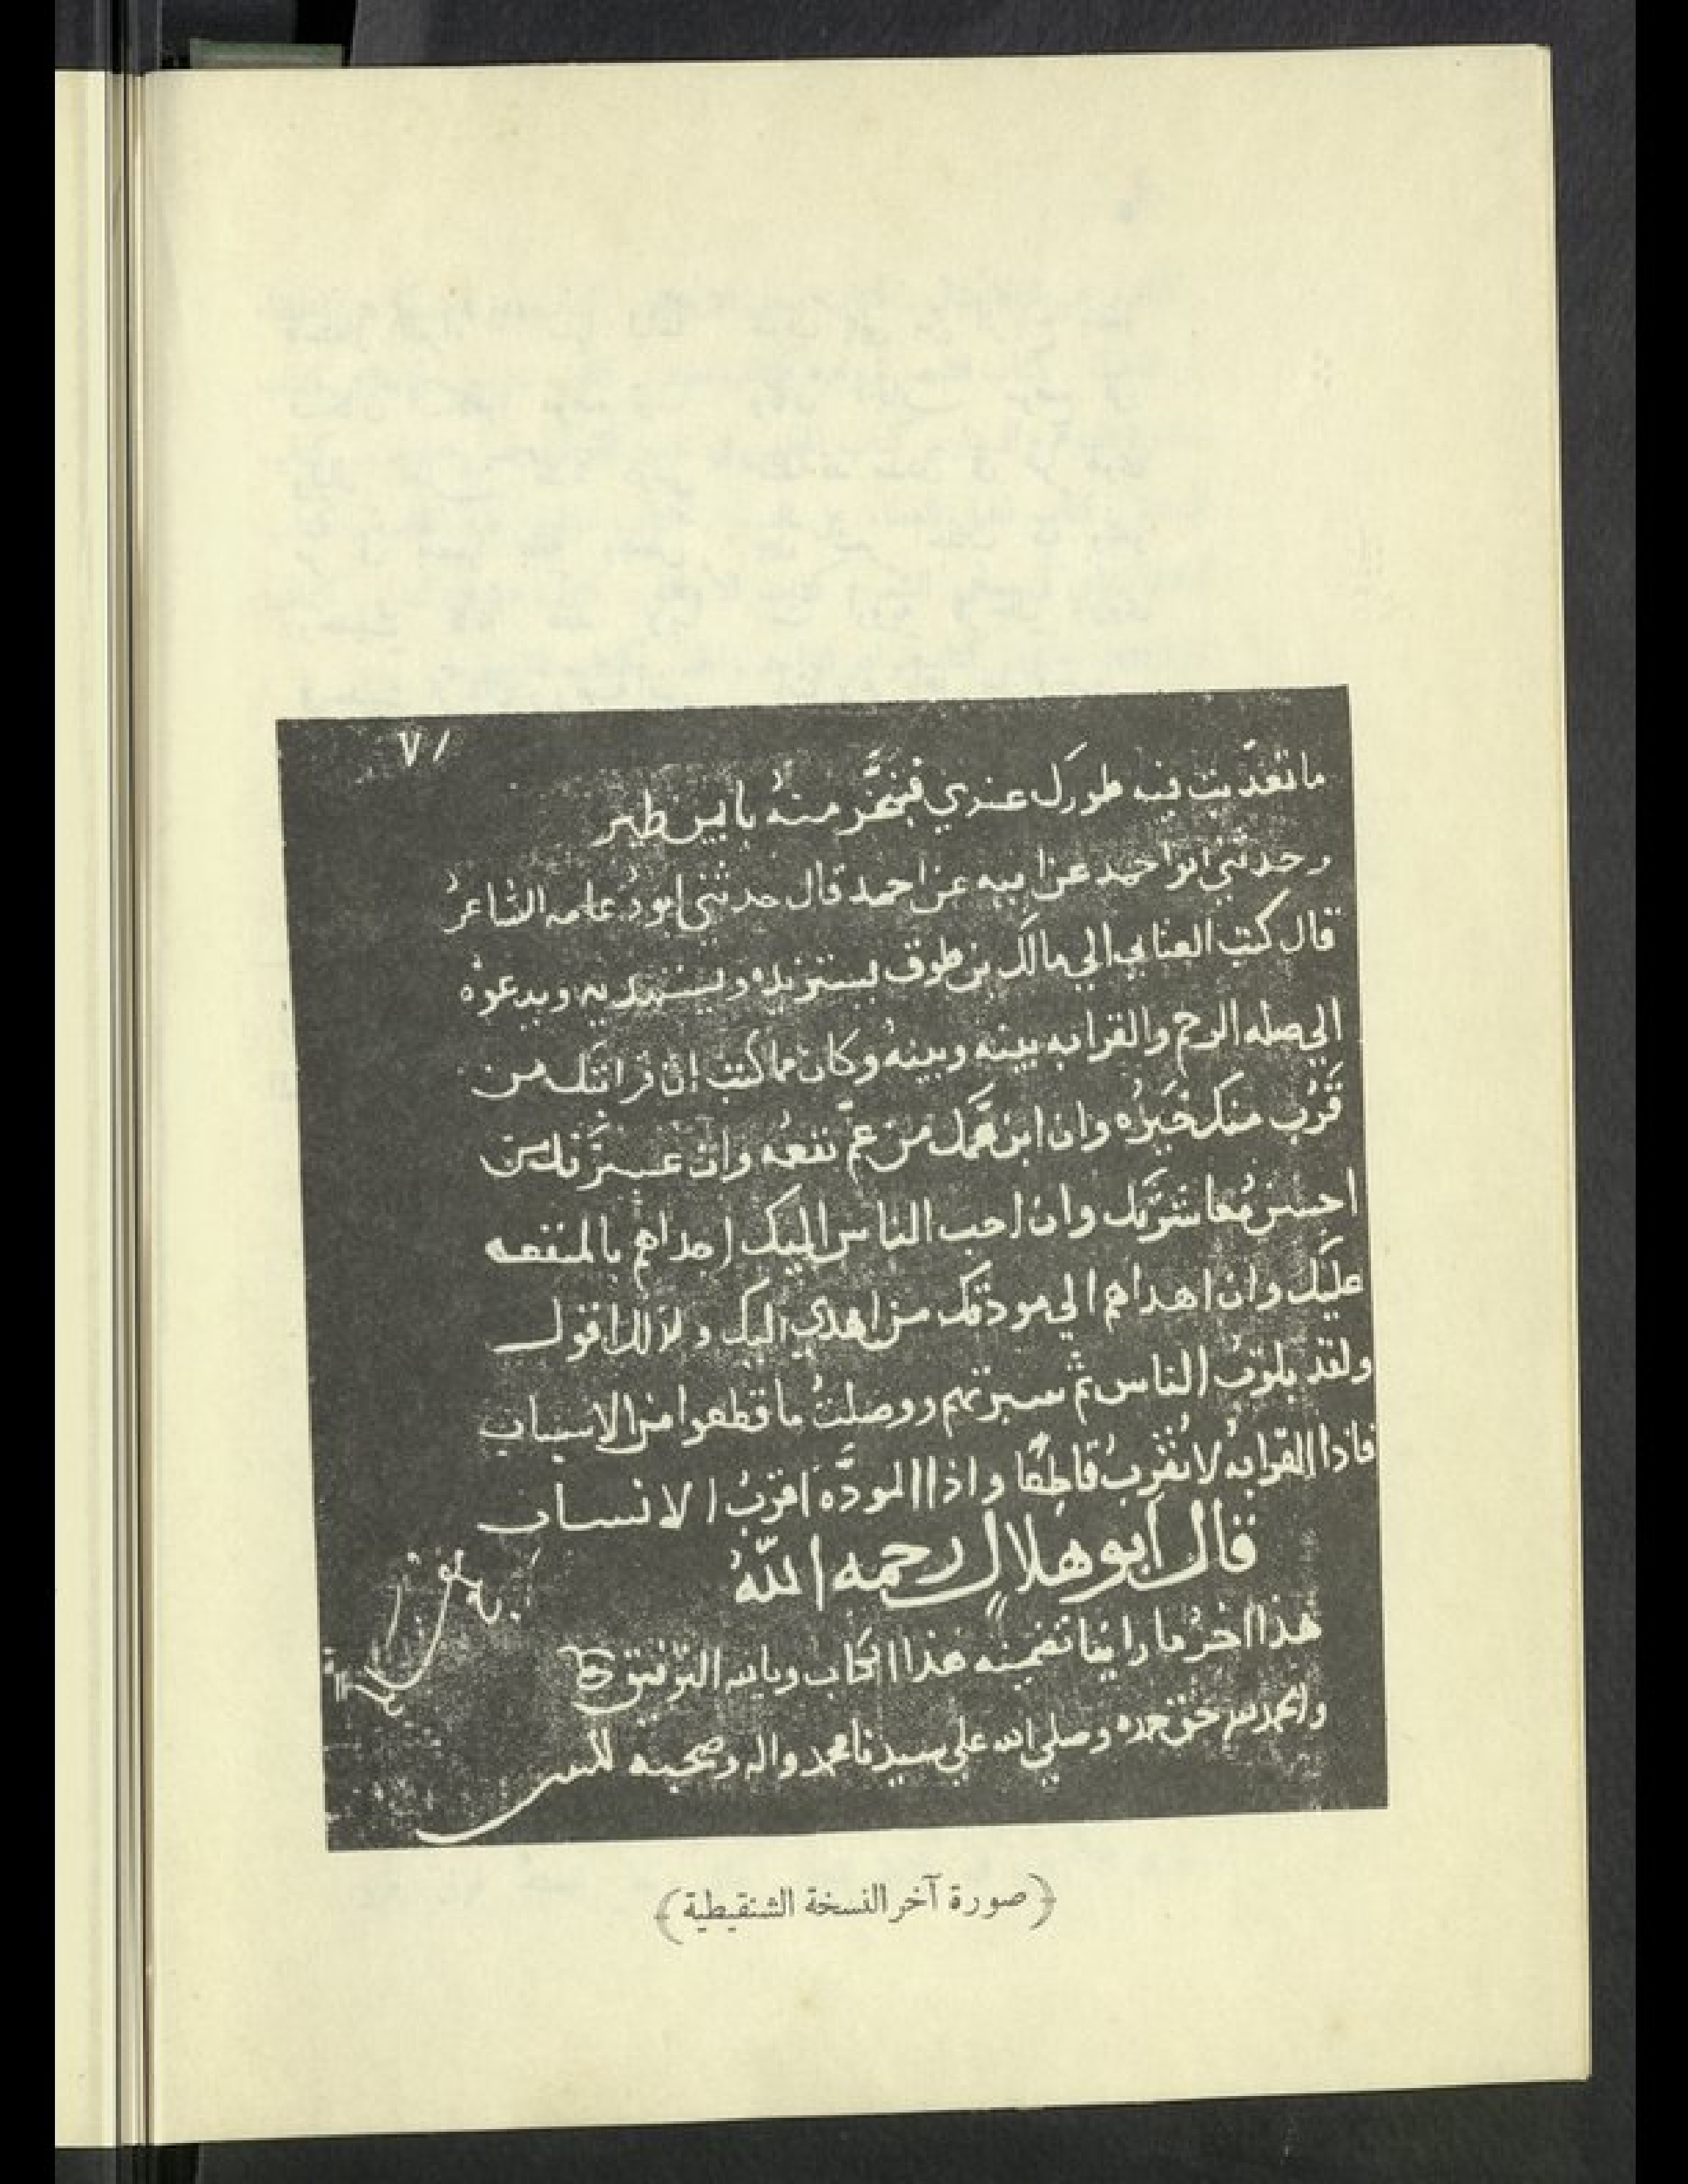 ٧١
ما تعديت فيه طورك عندي فتخر منه بابين طير
وحدثني ابو احمد عن ابيه عن احمد قال حدثني ابو دعامه الشاعر
قال كتب العتابي الي مالك بن طوق يستزيده ويستهديه ويدعوه
الي صله الرحم والقرابه بينه وبينه وكان مما كتب ان قرابتك من
قرب منك خيره وان ابن عمك من عم نفعه وان عشيرتك من
احسن معاشرتك وان احب الناس اليك اجداهم بالمنفعه
عليك وان اهداهم الي مودتك من اهدي اليك ولذلك اقول
ولقد بلوت الناس ثم سبرتهم ووصلت ما قطعوا من الاسباب
فاذا القرابه لا تقرب قاطعا واذا المودة اقرب الانساب
قال ابو هلال رحمه الله
هذا اخر ما راينا تضمينه هذا الكتاب وبالله التوفيق
والحمد لله حق حمده وصلي الله علي سيدنا محمد واله وصحبه
(صورة آخر النسخة الشنقيطية)